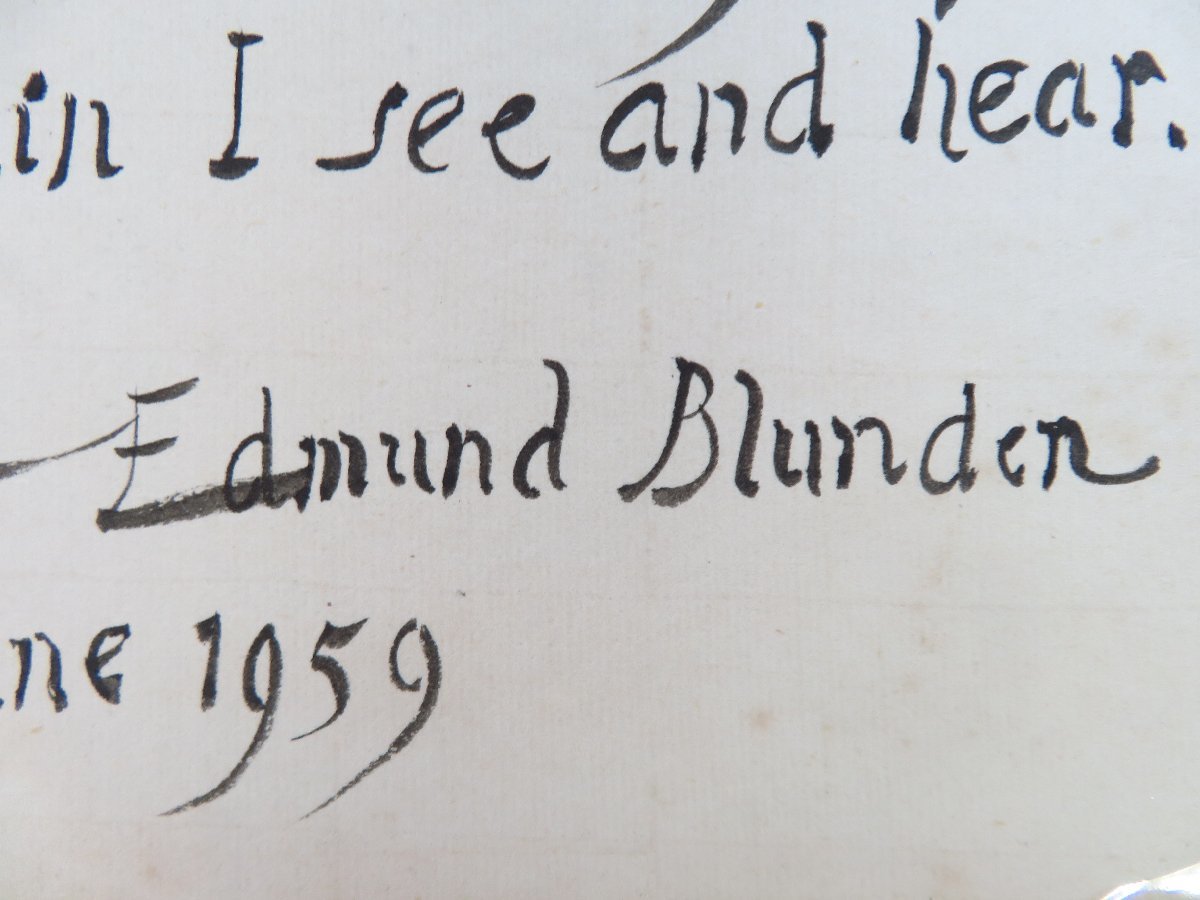 in I see and hear.
Edmund Blunden
ne 1959